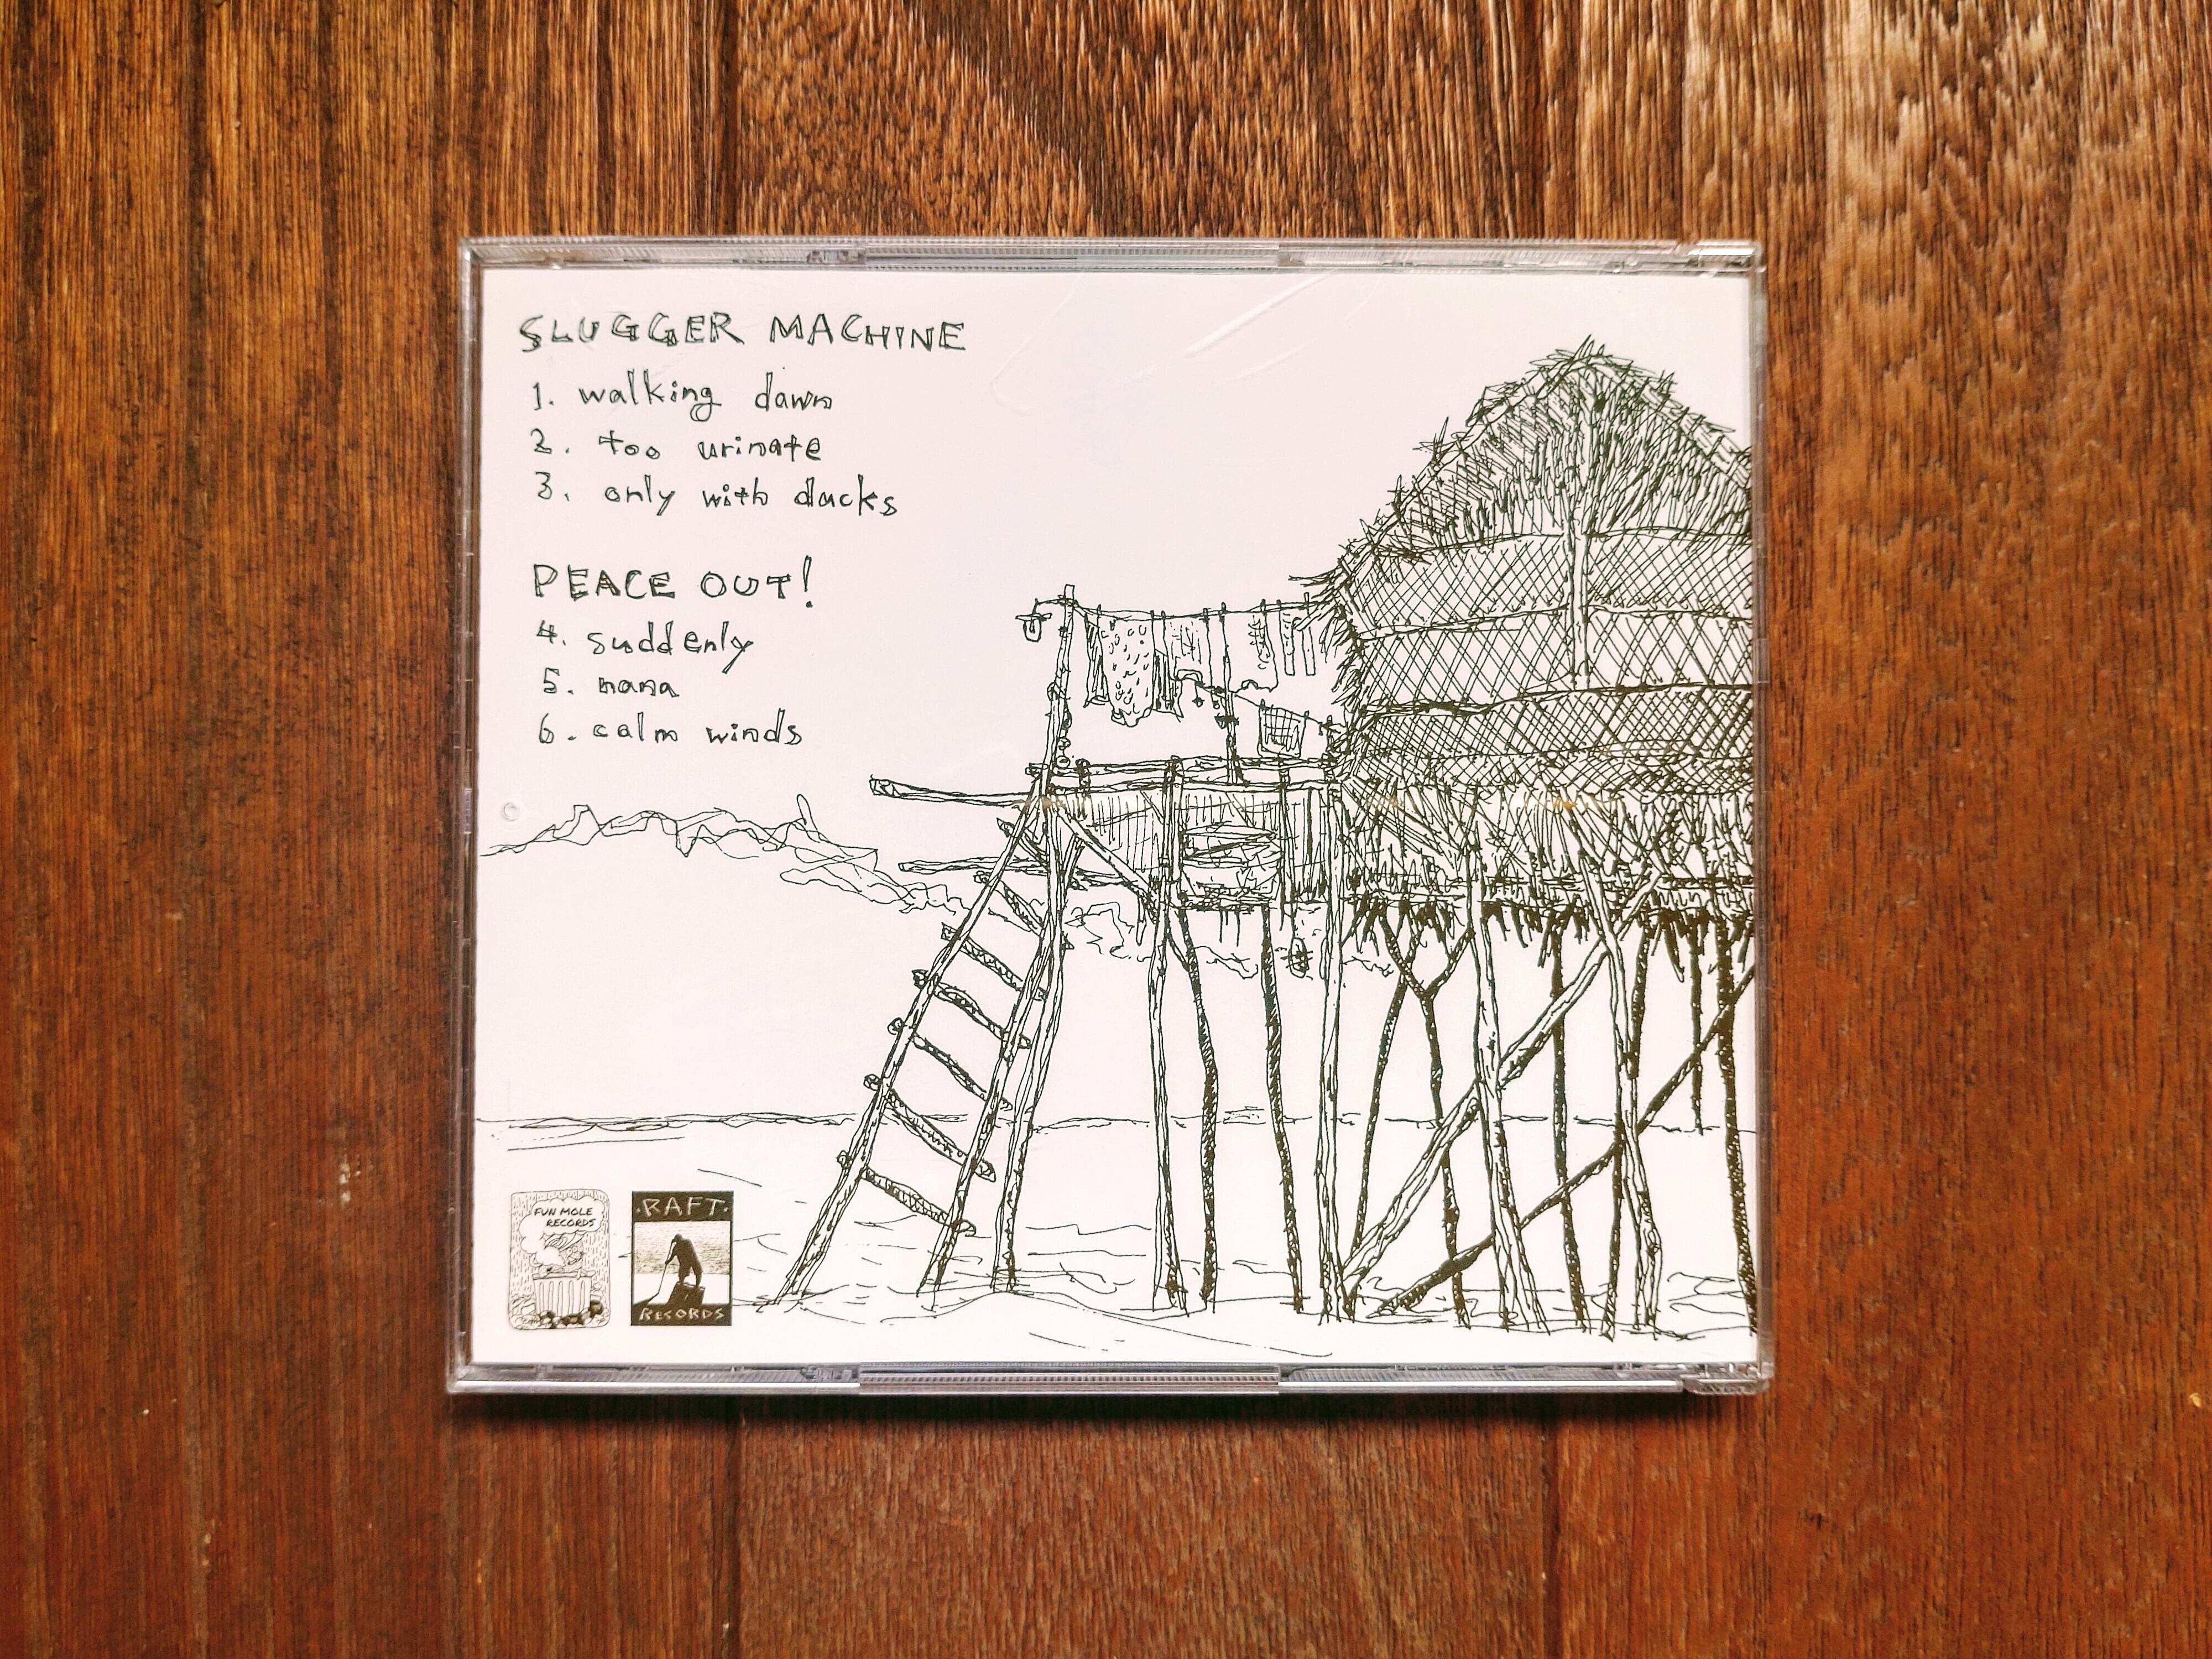 SLUGGER MACHINE
1. walking dawn
2. too urinate
3. only with ducks
PEACE OUT!
4. suddenly
5. nana
6. calm winds
FUN MOLE
RECORDS
·RAFT·
RECORDS